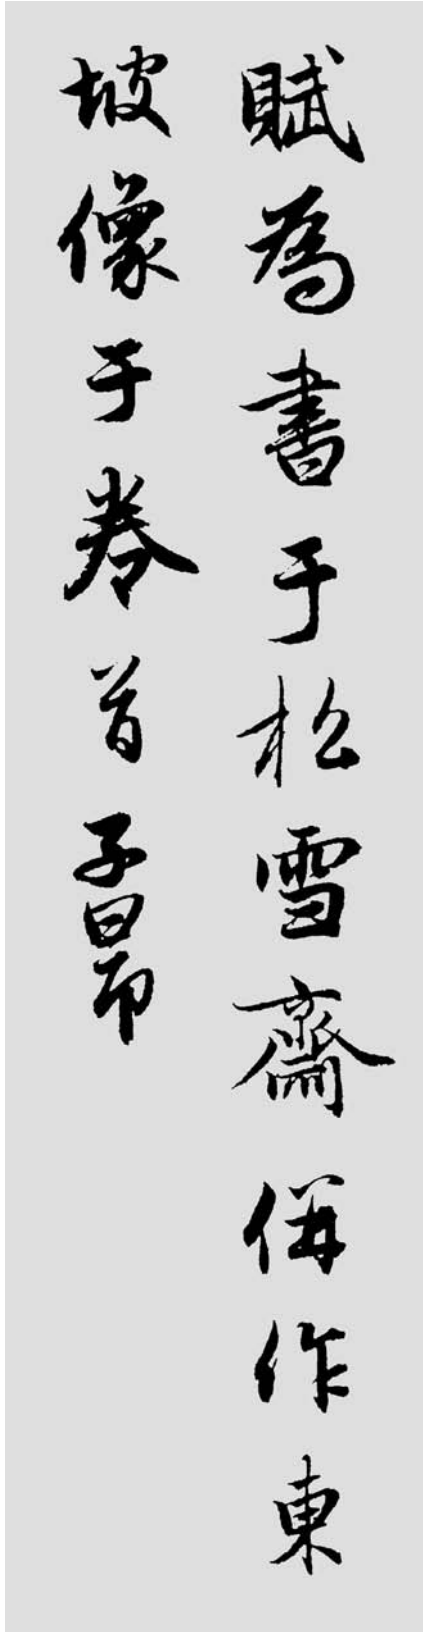 賦為書于松雪齋併作東
坡像于卷首子昂